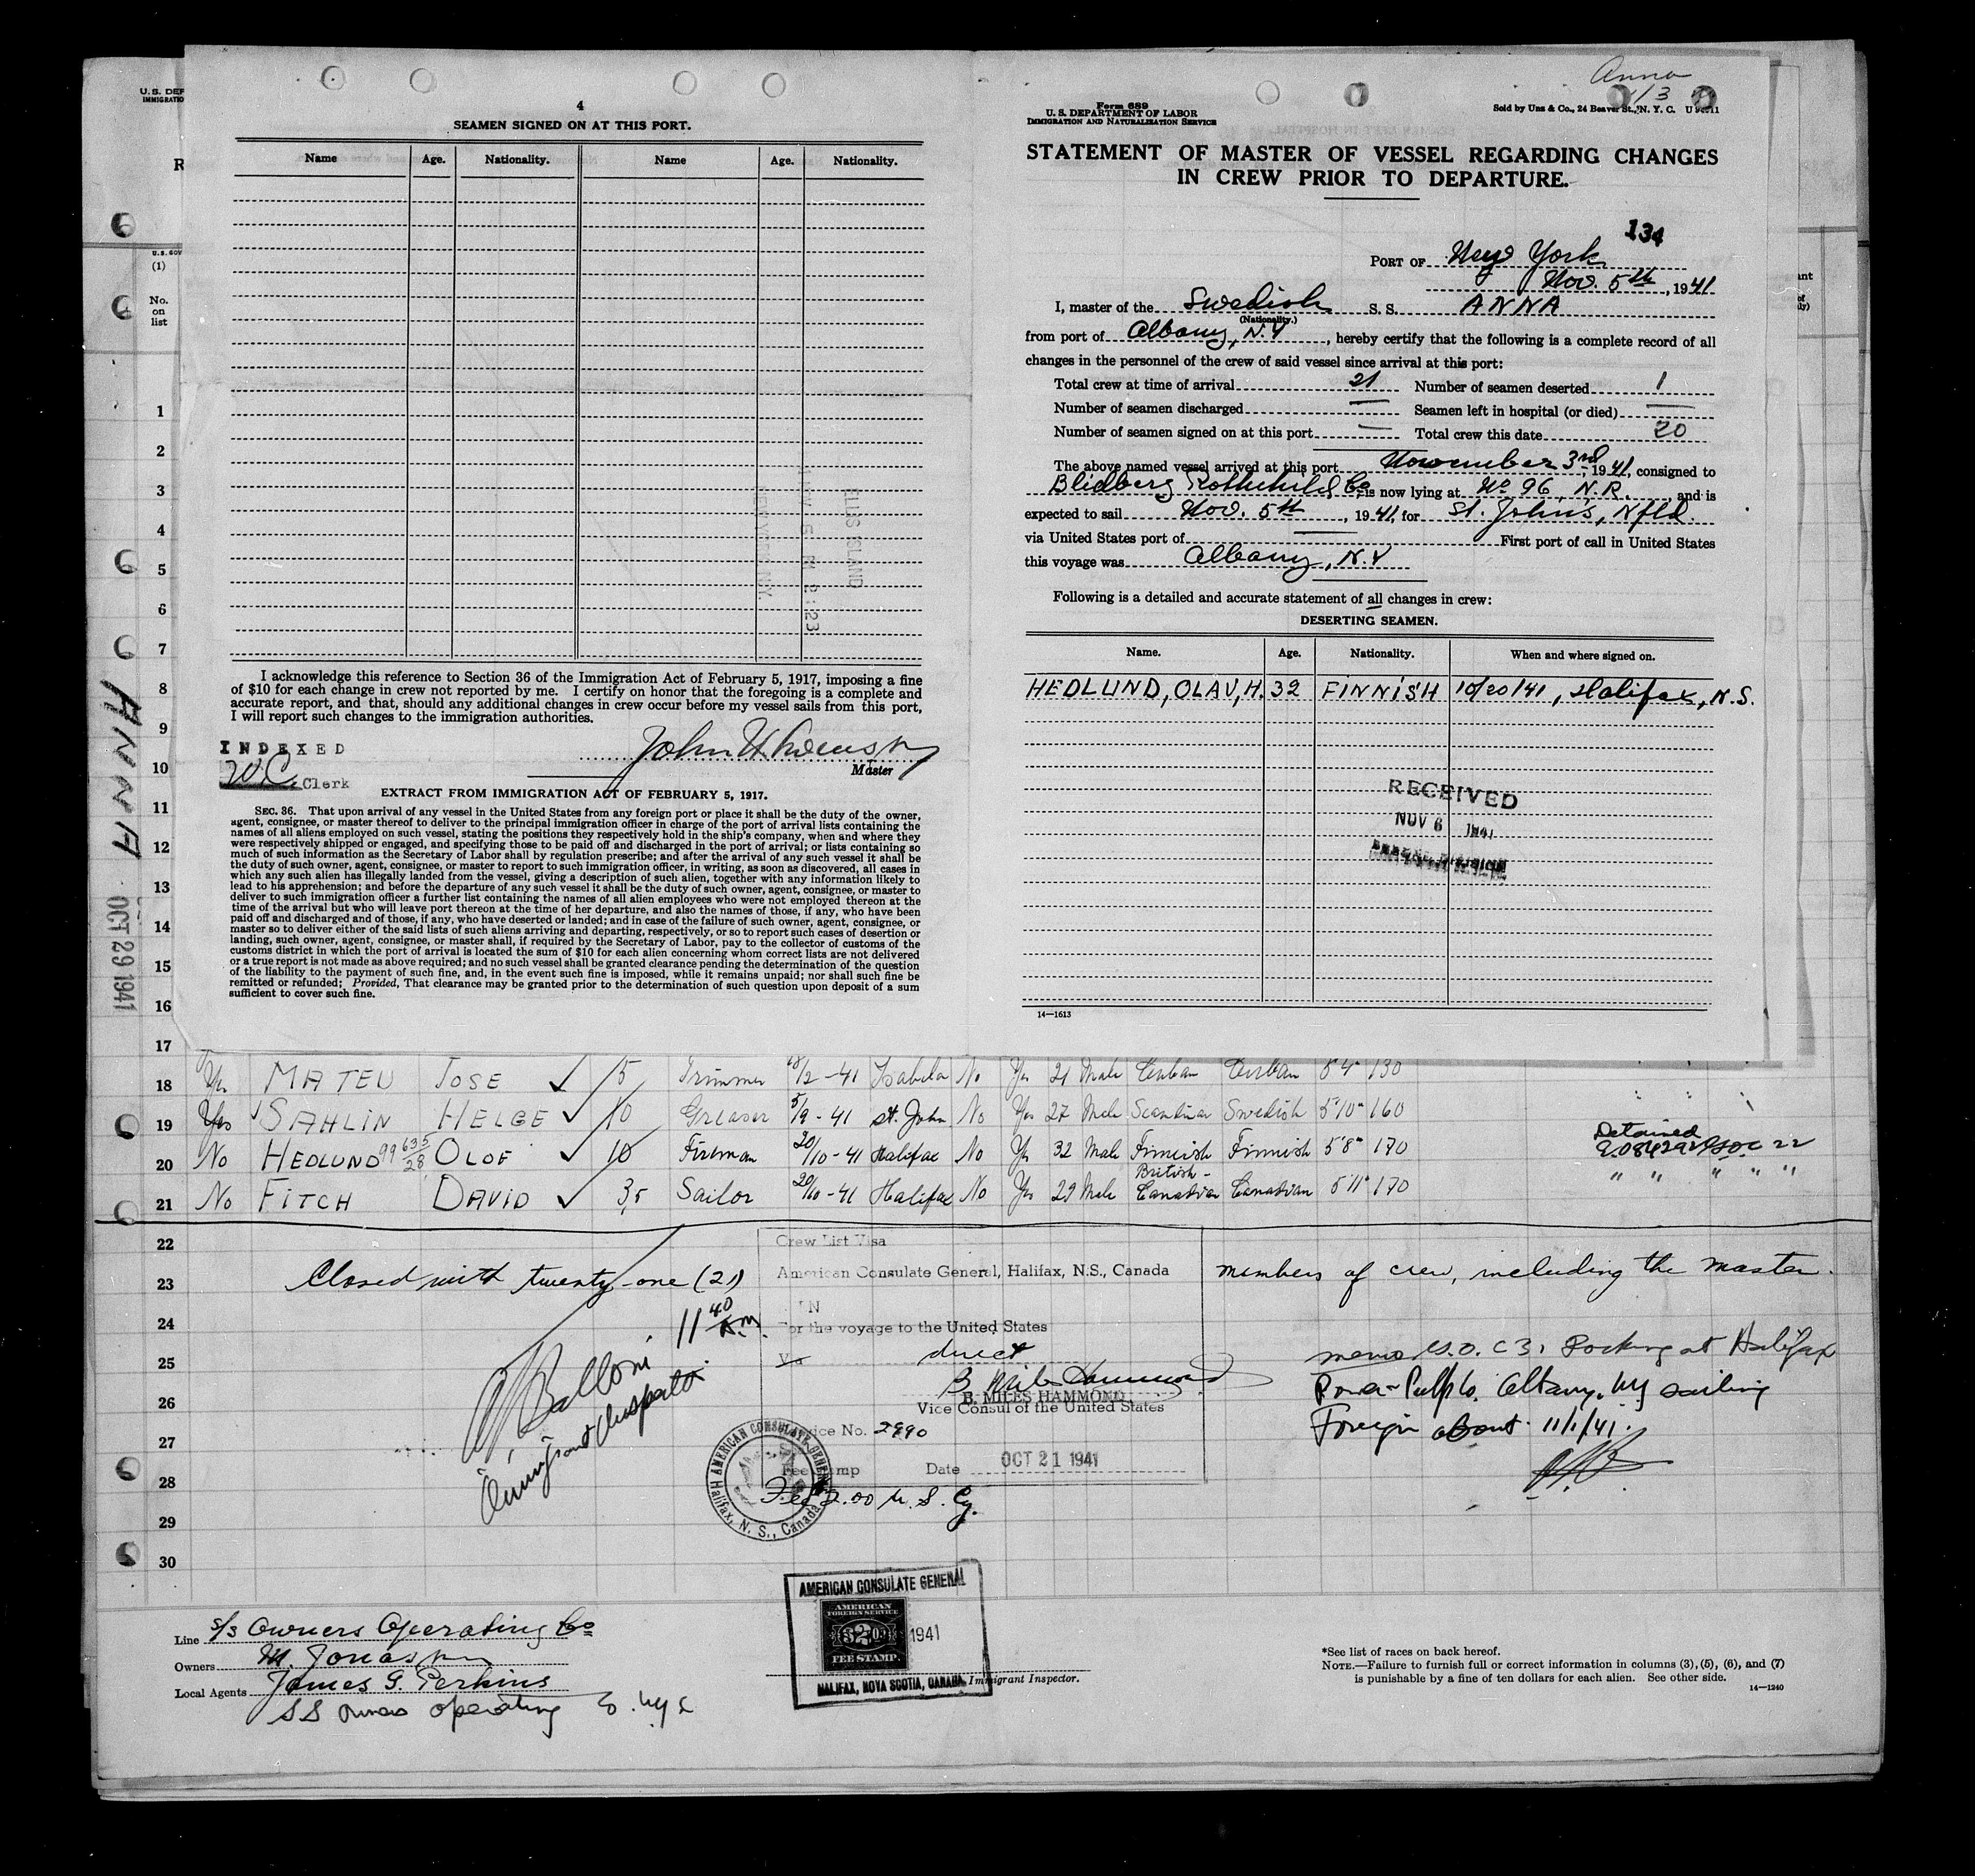 U.S. DEF
IMMIGRATIO
R
U.S. GOV
(1)
No.
on
list
4
SEAMEN SIGNED ON AT THIS PORT.
Name Age. Nationality. Name Age. Nationality.
ELLIS ISLAND
I acknowledge this reference to Section 36 of the Immigration Act of February 5, 1917, imposing a fine
of $10 for each change in crew not reported by me. I certify on honor that the foregoing is a complete and
accurate report, and that, should any additional changes in crew occur before my vessel sails from this port,
I will report such changes to the immigration authorities.
INDEXED
W.C. Clerk
Master
EXTRACT FROM IMMIGRATION ACT OF FEBRUARY 5, 1917.
SEC. 36. That upon arrival of any vessel in the United States from any foreign port or place it shall be the duty of the owner,
agent, consignee, or master thereof to deliver to the principal immigration officer in charge of the port of arrival lists containing the
names of all aliens employed on such vessel, stating the positions they respectively hold in the ship's company, when and where they
were respectively shipped or engaged, and specifying those to be paid off and discharged in the port of arrival; or lists containing so
much of such information as the Secretary of Labor shall by regulation prescribe; and after the arrival of any such vessel it shall be
the duty of such owner, agent, consignee, or master to report to such immigration officer, in writing, as soon as discovered, all cases in
which any such alien has illegally landed from the vessel, giving a description of such alien, together with any information likely to
lead to his apprehension; and before the departure of any such vessel it shall be the duty of such owner, agent, consignee, or master to
deliver to such immigration officer a further list containing the names of all alien employees who were not employed thereon at the
time of the arrival but who will leave port thereon at the time of her departure, and also the names of those, if any, who have been
paid off and discharged and of those, if any, who have deserted or landed; and in case of the failure of such owner, agent, consignee, or
master so to deliver either of the said lists of such aliens arriving and departing, respectively, or so to report such cases of desertion or
landing, such owner, agent, consignee, or master shall, if required by the Secretary of Labor, pay to the collector of customs of the
customs district in which the port of arrival is located the sum of $10 for each alien concerning whom correct lists are not delivered
or a true report is not made as above required; and no such vessel shall be granted clearance pending the determination of the question
of the liability to the payment of such fine, and, in the event such fine is imposed, while it remains unpaid; nor shall such fine be
remitted or refunded; Provided, That clearance may be granted prior to the determination of such question upon deposit of a sum
sufficient to cover such fine.
Anna
Form 689
U. S. DEPARTMENT OF LABOR
IMMIGRATION AND NATURALIZATION SERVICE
Sold by Unz & Co., 24 Beaver St., N. Y. C.
STATEMENT OF MASTER OF VESSEL REGARDING CHANGES
IN CREW PRIOR TO DEPARTURE.
134
PORT OF New York
Nov. 5th, 1941
I, master of the Swedish S. S. ANNA
(Nationality.)
from port of Albany, N.Y, hereby certify that the following is a complete record of all
changes in the personnel of the crew of said vessel since arrival at this port:
Total crew at time of arrival 21 Number of seamen deserted 1
Number of seamen discharged — Seamen left in hospital (or died) —
Number of seamen signed on at this port — Total crew this date 20
The above named vessel arrived at this port November 3rd, 1941, consigned to
Blidberg Rothchild Co, is now lying at No 96, N.R., and is
expected to sail Nov. 5th, 1941, for St. John's, Nfld.
via United States port of — First port of call in United States
this voyage was Albany, N.Y
Following is a detailed and accurate statement of all changes in crew:
DESERTING SEAMEN.
Name. Age. Nationality. When and where signed on.
HEDLUND, OLAV, H. 32 FINNISH 10/20/41, Halifax, N.S.
RECEIVED
NOV 6 1941
14—1613
ANNA OCT 29 1941
1
2
3
4
5
6
7
8
9
10
11
12
13
14
15
16
17
18 Yes MATEU JOSE ✓ 15 Trimmer 18/2-41 Isabela No Yes 21 Male Cuban Cuban 5'4" 130
19 Yes ✓ SAHLIN HELGE ✓ 10 Greaser 5/9-41 St. John No Yes 27 Male Scandinav Swedish 5'10" 160
20 No HEDLUND 99 635/28 OLOF ✓ 10 Fireman 20/10-41 Halifax No Yes 32 Male Finnish Finnish 5'8" 170 Detained
21 No FITCH DAVID ✓ 3,5 Sailor 20/10-41 Halifax No Yes 29 Male British-Canadian Canadian 5'11" 170 " " " " "
22
23 Closed with twenty-one (21) members of crew, including the master.
24
25
26
27
28
29
30
11 40 A.m.
Immigrant Inspector
Crew List Visa
American Consulate General, Halifax, N.S., Canada
For the voyage to the United States
Via direct
B. MILES HAMMOND
Vice Consul of the United States
Service No. 2990
Fee Stamp Date OCT 21 1941
Fee 2.00 U. S. Cy.
AMERICAN CONSULATE GENERAL
Halifax, N. S., Canada
at Halifax
Albany, NY sailing
Foreign about 11/1/41.
AMERICAN CONSULATE GENERAL
AMERICAN
FOREIGN SERVICE
$2.00
FEE STAMP.
1941
HALIFAX, NOVA SCOTIA, CANADA.
Immigrant Inspector.
Line S/S Owners Operating Co
Owners M. Jonasson
Local Agents James G. Perkins
SS Owners operating Co. NYC
*See list of races on back hereof.
NOTE.—Failure to furnish full or correct information in columns (3), (5), (6), and (7)
is punishable by a fine of ten dollars for each alien. See other side.
14—1240